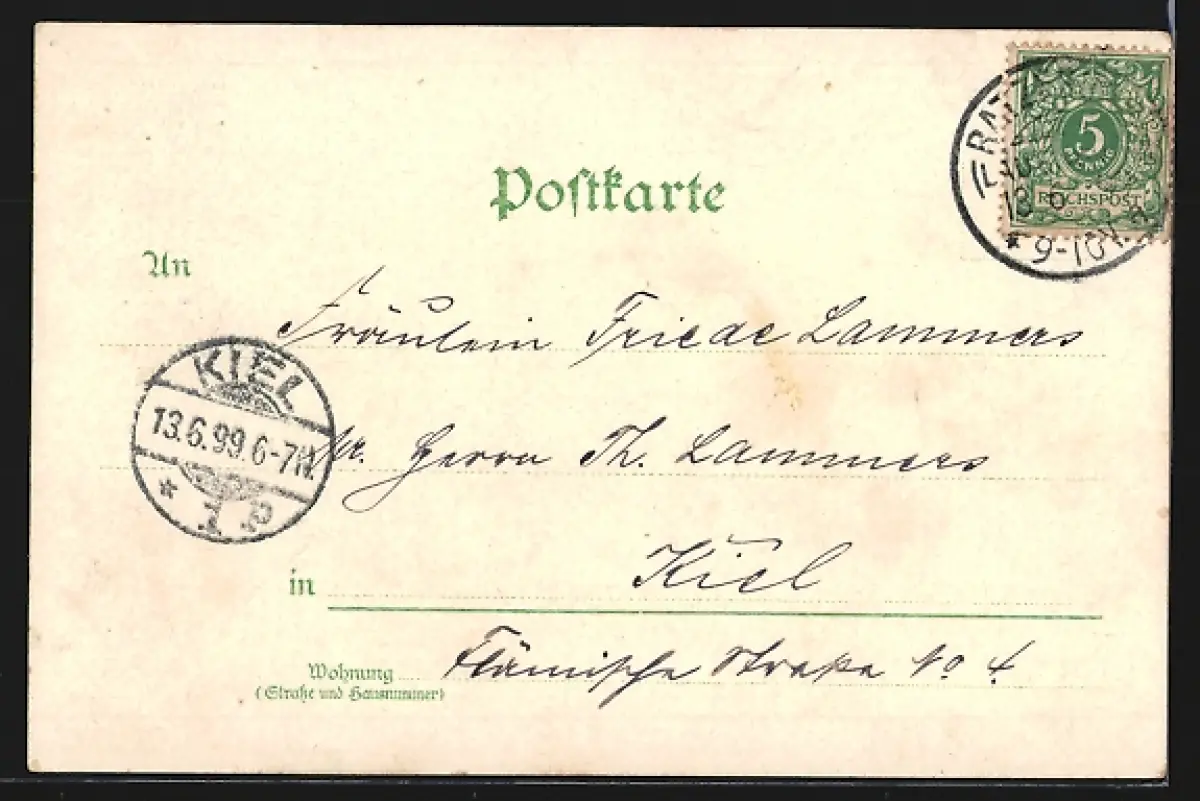 5
PFENNIG
REICHSPOST
9-10V.
Postkarte
An
Fräulein Friede Lammers
KIEL
13.6.99.6-7N.
* 1 P
Herrn Th. Lammers
in Kiel
Wohnung Flämische Straße No. 4
(Straße und Hausnummer)